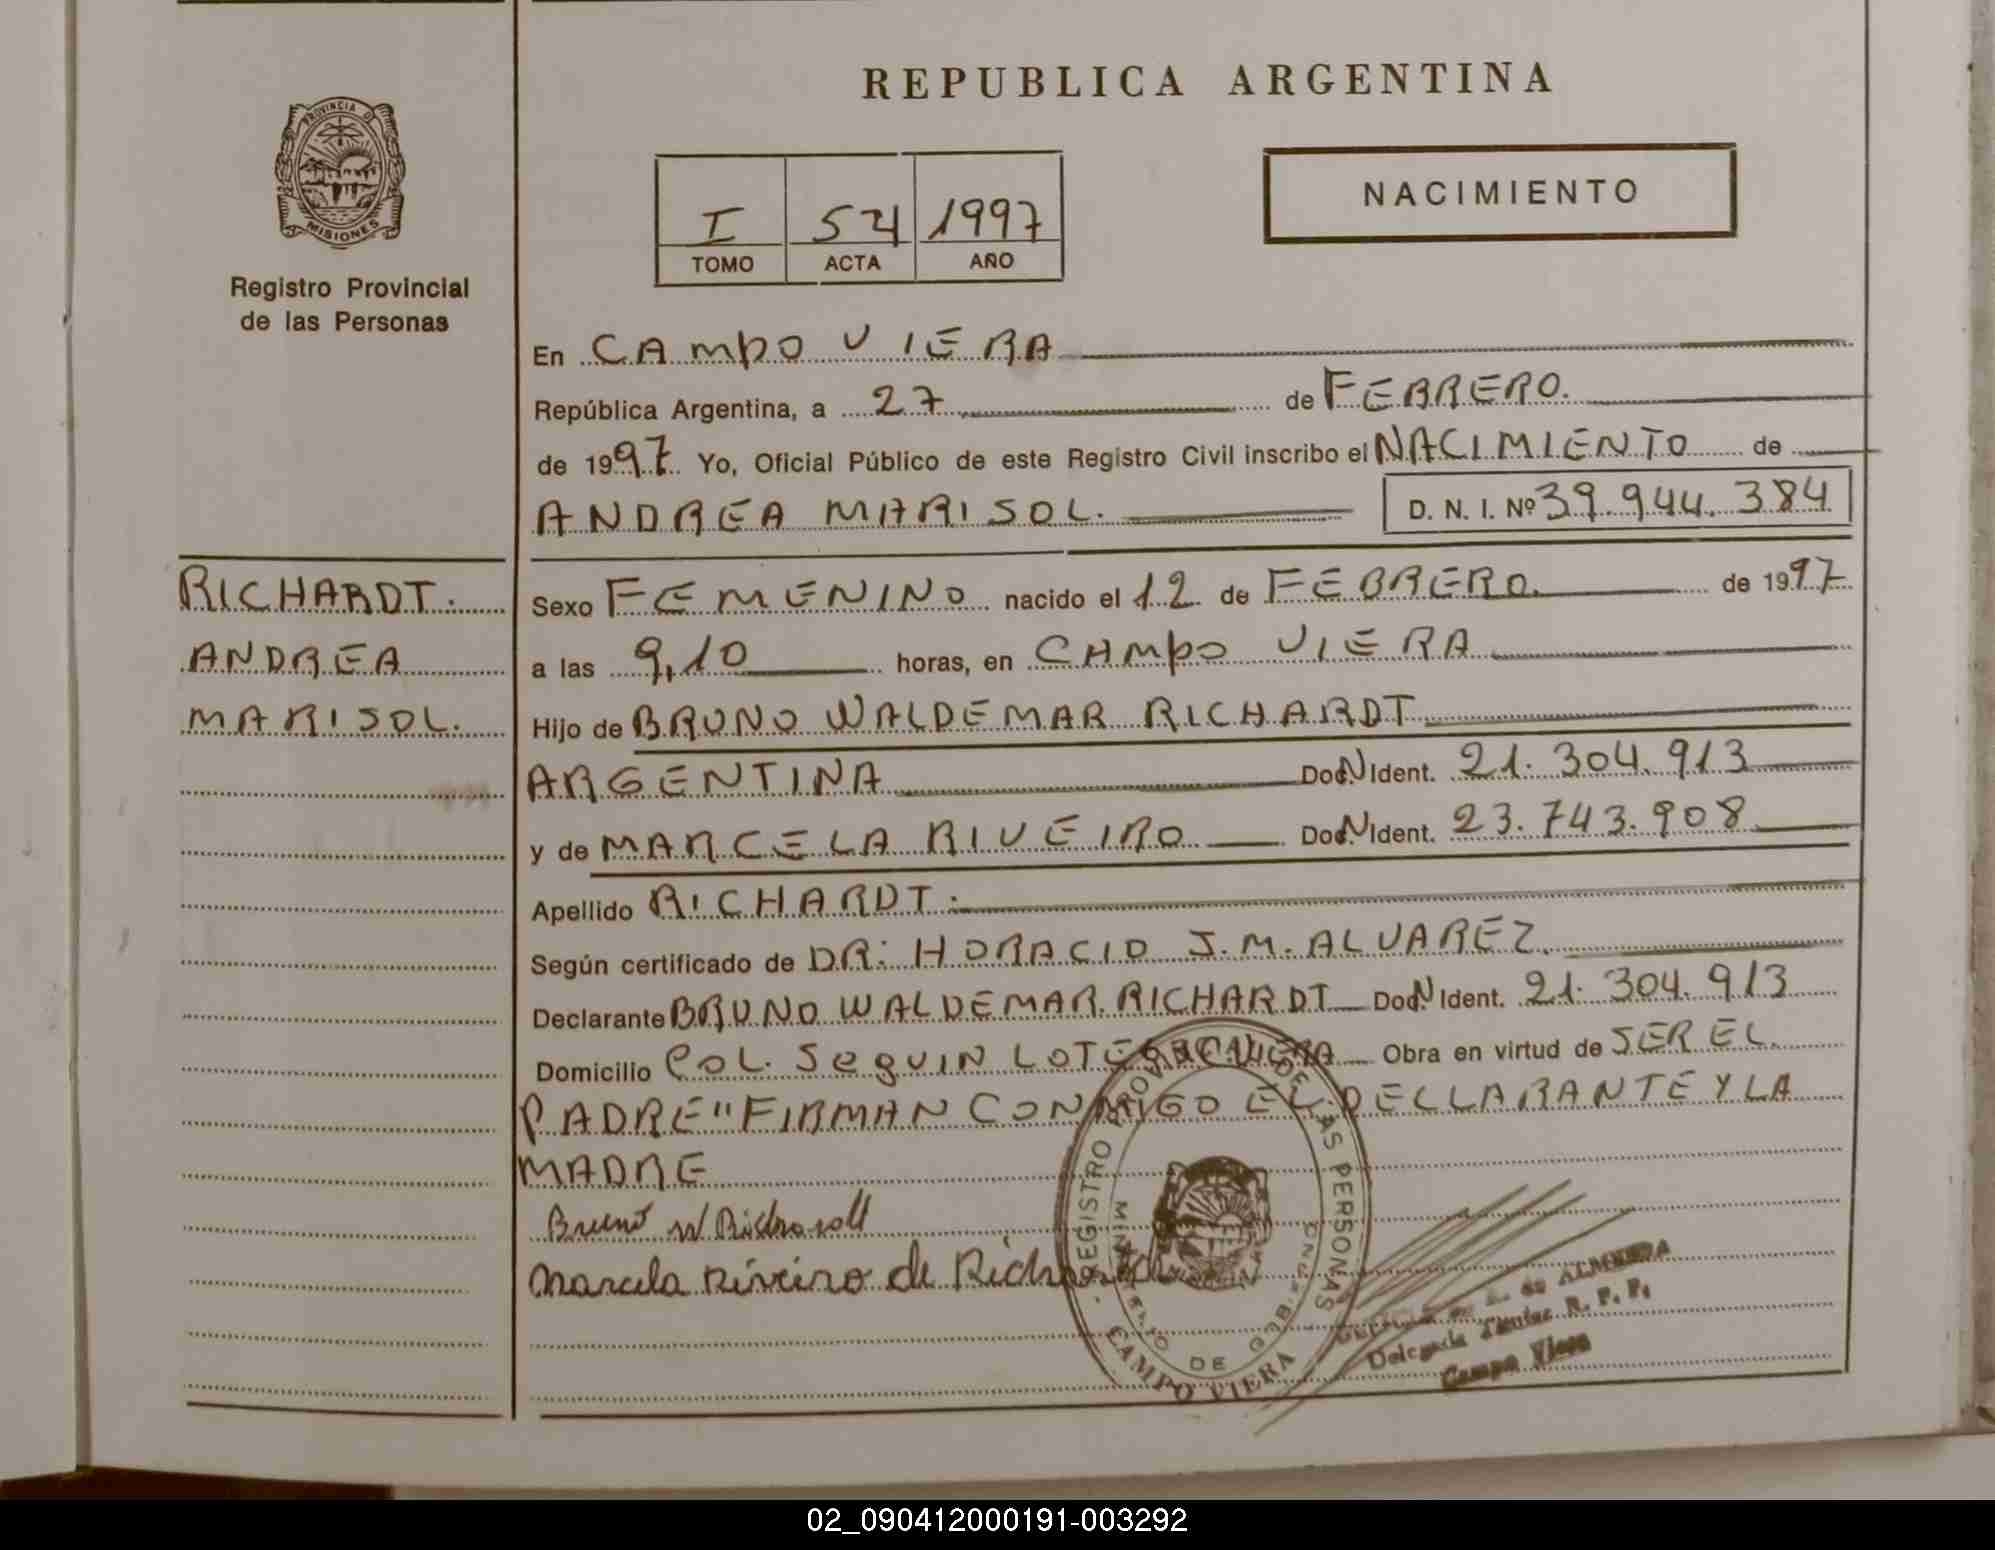 REPUBLICA ARGENTINA
PROVINCIA DE
MISIONES
Registro Provincial
de las Personas
I 54 1997
TOMO ACTA AÑO
NACIMIENTO
En CAMPO VIERA
República Argentina, a 27 de FEBRERO.
de 1997 Yo, Oficial Público de este Registro Civil inscribo el NACIMIENTO de
ANDREA MARISOL. D. N. I. Nº 39.944.384
RICHARDT.
ANDREA
MARISOL.
Sexo FEMENINO nacido el 12 de FEBRERO. de 1997
a las 9,10 horas, en CAMPO VIERA
Hijo de BRUNO WALDEMAR RICHARDT
ARGENTINA Doc.N Ident. 21.304.913
y de MARCELA RIVEIRO Doc.N Ident. 23.743.908
Apellido RICHARDT.
Según certificado de DR: HORACIO J.M. ALVAREZ.
Declarante BRUNO WALDEMAR RICHARDT Doc.N Ident. 21.304.913
Domicilio COL. SEGUIN LOTE VIERA Obra en virtud de SER EL
PADRE" FIRMAN CONMIGO EL DECLARANTE Y LA
MADRE
Bruno W Richardt
Marcela Riveiro de Richardt
REGISTRO PROVINCIAL DE LAS PERSONAS
MINISTERIO DE GOBIERNO
CAMPO VIERA
de ALMEIDA
Delegada Titular R. P. P.
Campo Viera
02_090412000191-003292